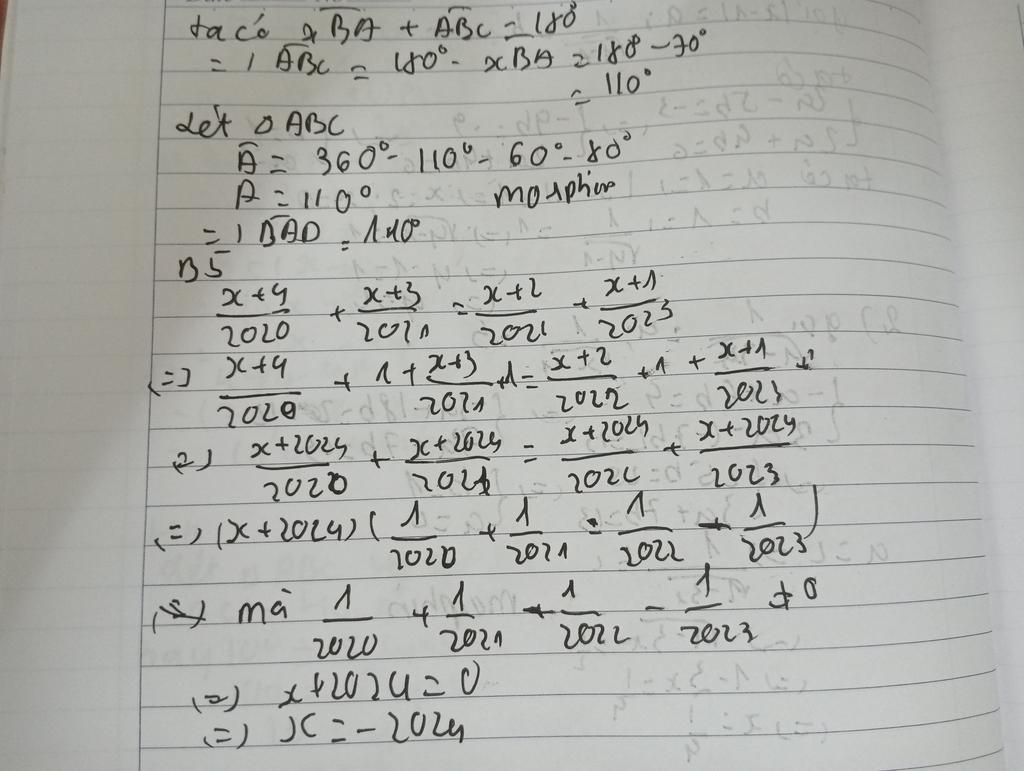 ta có xBA + ABC = 180°
=) ABC = 180° - xBA = 180° - 70°
= 110°
Lét △ ABC
A = 360° - 110° - 60° - 80°
A = 110° morphin
=) BAD = 110°
B5
x+4/2020 + x+3/2021 = x+2/2021 + x+1/2023
(=) x+4/2020 + 1 + x+3/2021 + 1 = x+2/2022 + 1 + x+1/2023 + 1
(=) x+2024/2020 + x+2024/2021 = x+2024/2022 + x+2024/2023
(=) (x+2024) (1/2020 + 1/2021 - 1/2022 - 1/2023)
mà 1/2020 + 1/2021 - 1/2022 - 1/2023 ≠ 0
(=) x+2024 = 0
(=) x = -2024